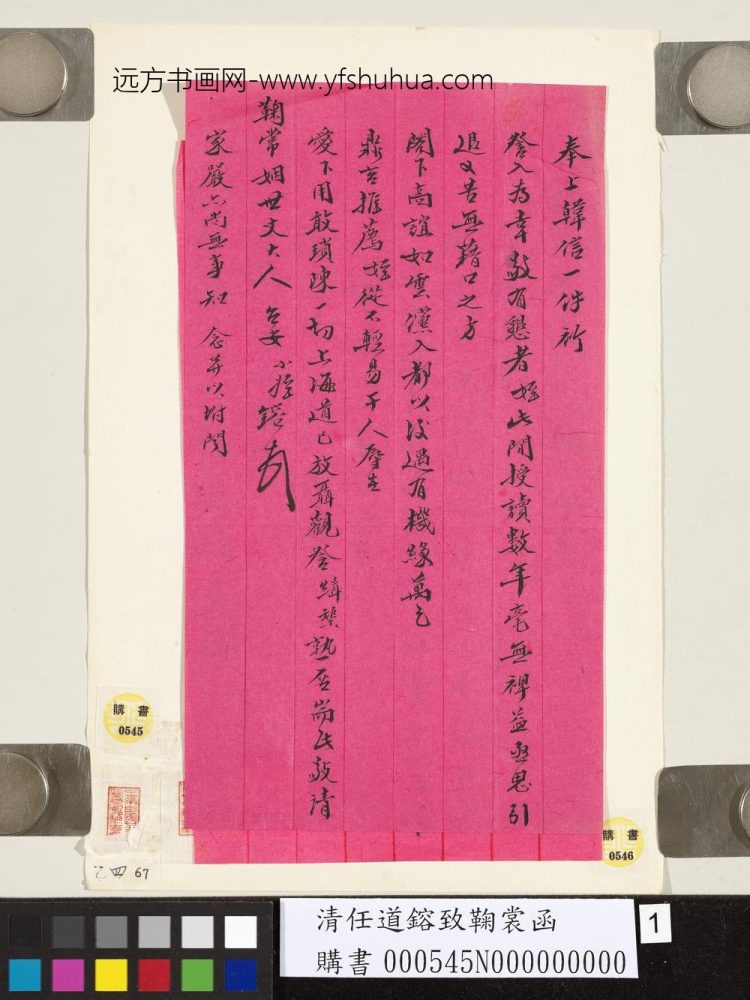 远方书画网-www.yfshuhua.com
奉上韓信一件祈
詧入為幸敬有懇者姪此間授讀數年毫無裨益亟思引
退又苦無藉口之方
閣下高誼如雲儻入都以後遇有機緣萬乞
鼎言推薦姪從不輕易干人辱在
愛下用敢瑣陳一切上海道已放聶觀詧緝椝熟否耑此敬請
鞠常姻世丈大人台安 小姪鎔
家嚴六尚無事知 念并以坿聞
購書
0545
購書
0546
乙四 67
清任道鎔致鞠裳函
購書 000545N000000000
1